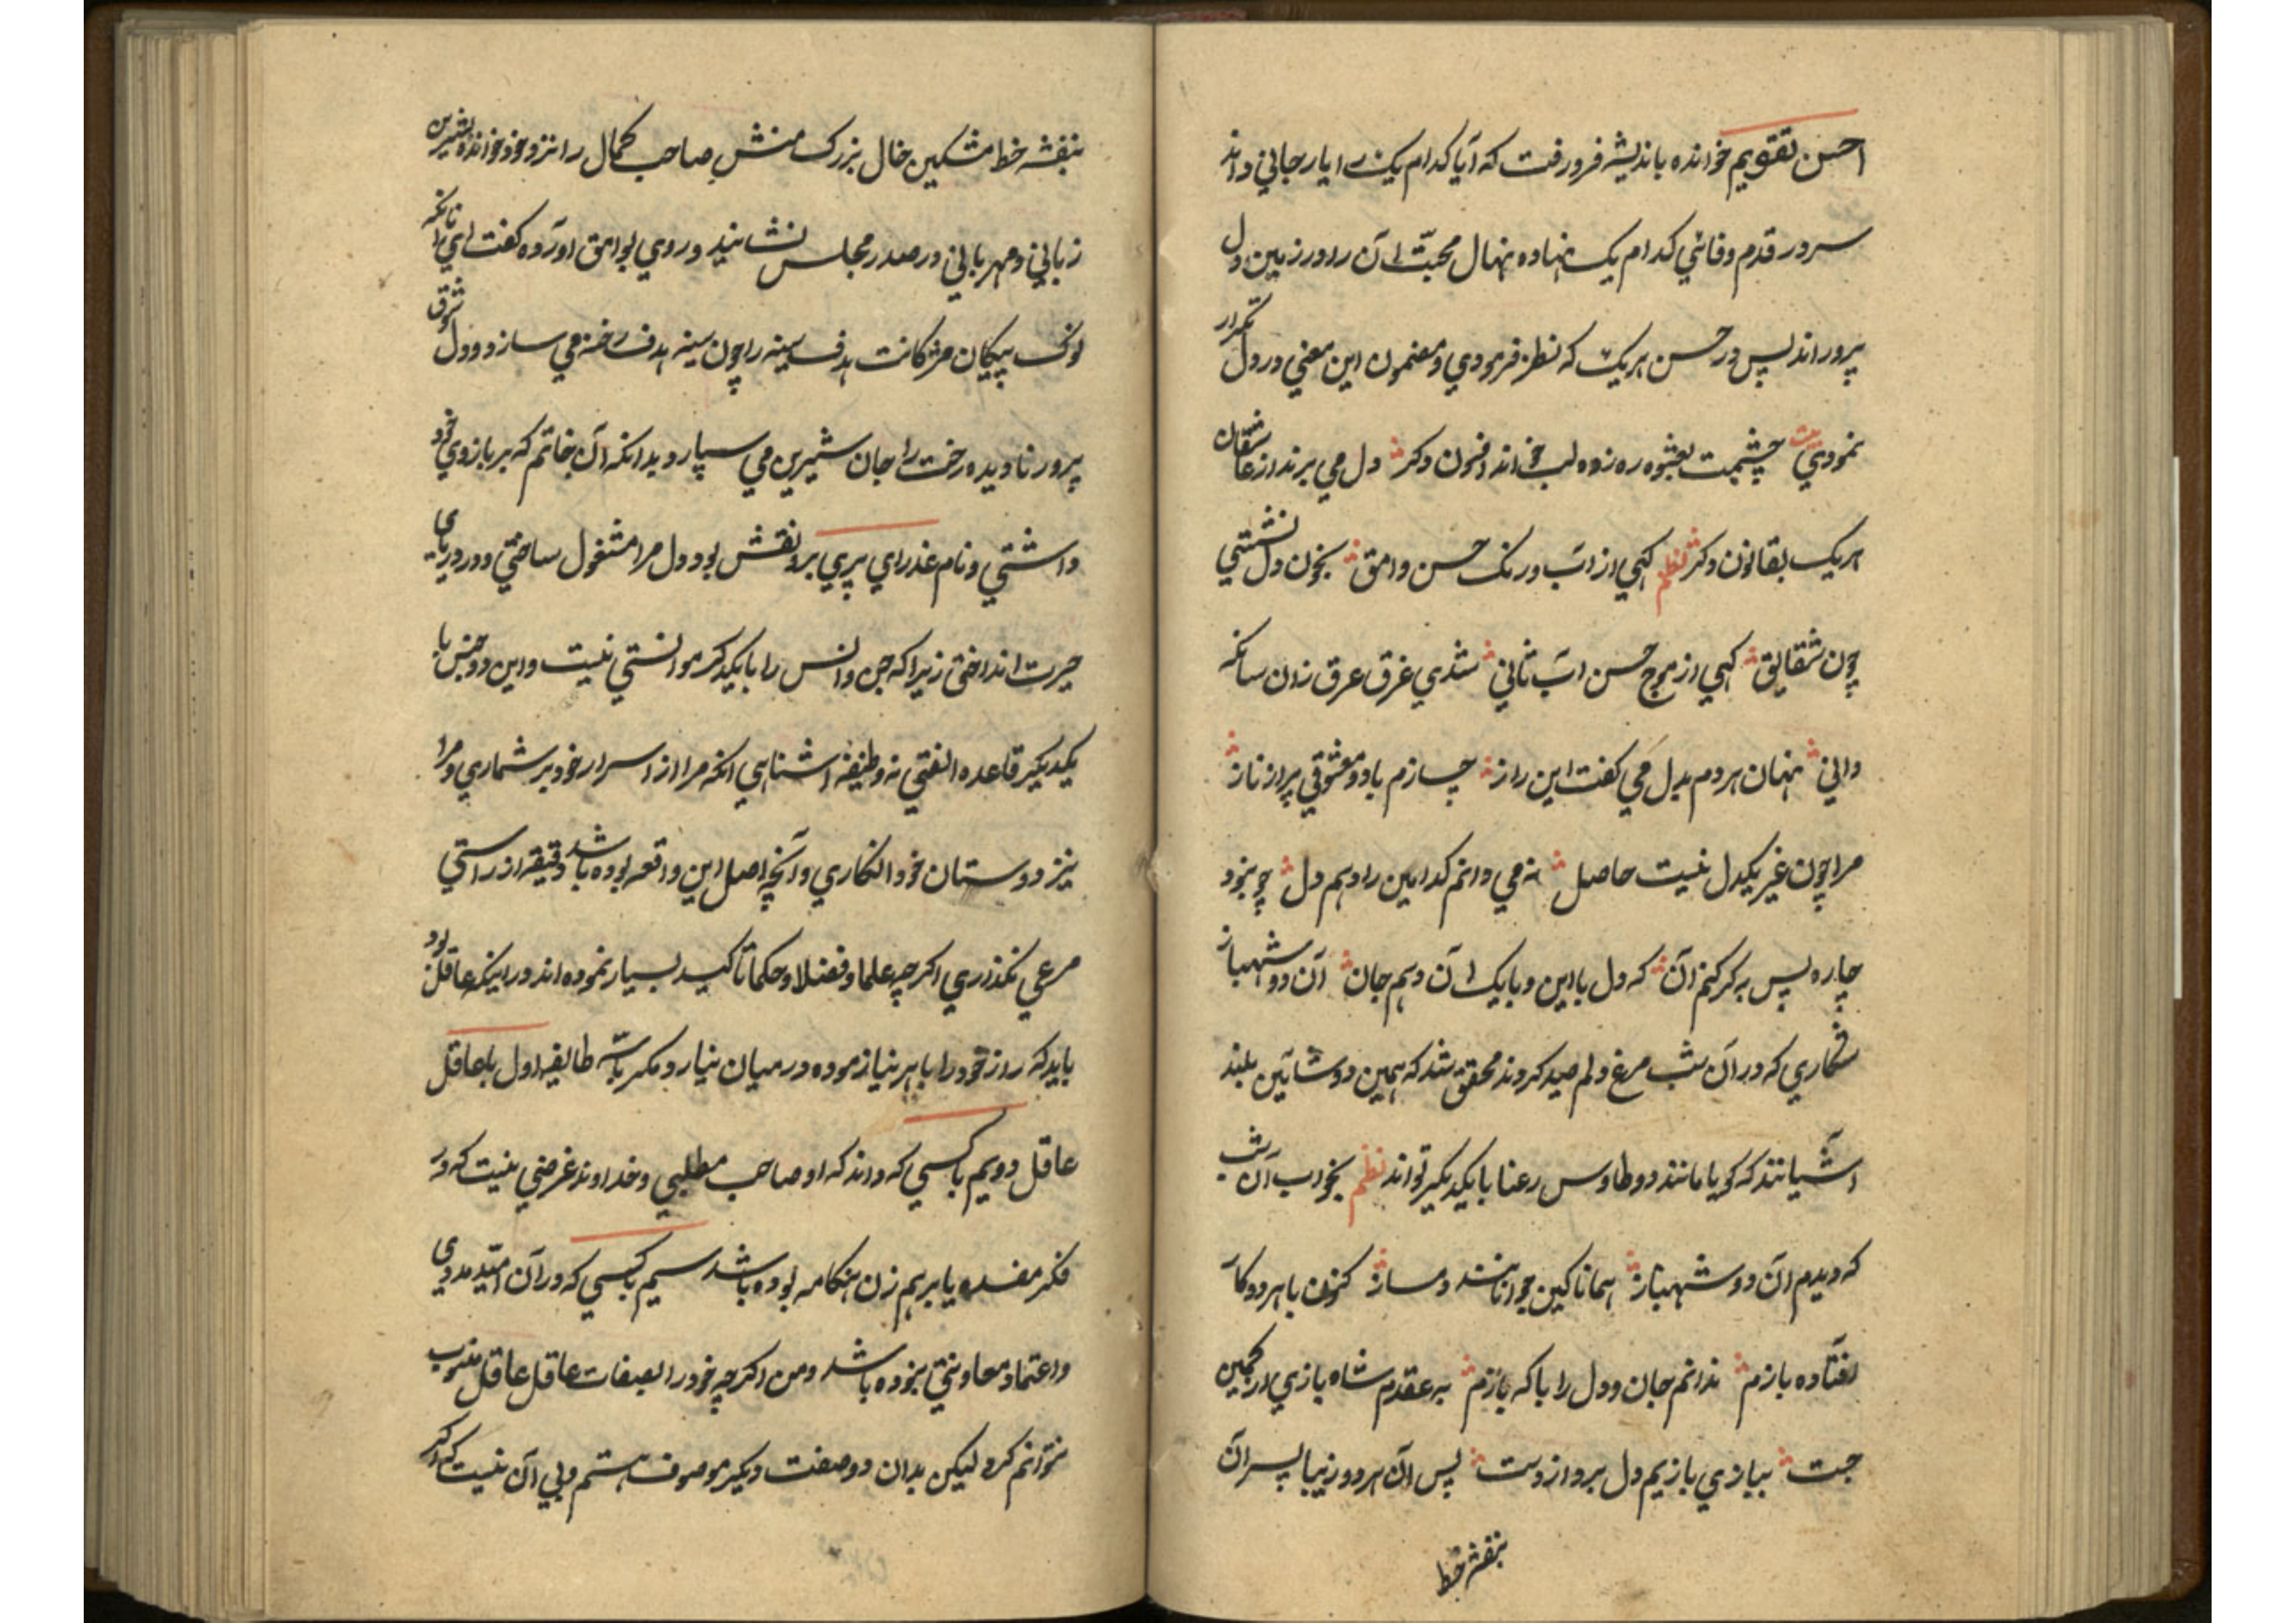 احسن تقویم خوانده باندیشه فرو رفت که آیا کدام یک را یار جانی داند
سر در قدم وفائی کدام یک نهاده نهال محبت آن را در زمین دل
پرورانند پس در حسن هر یک که نظر فرمودی و مضمون این معنی در دل تکرار
نمودی بیت چشمت بعشوه ره زده لب خوانده افسون دکر دل می برند از عاشقان
هر یک بقانون دکر نظم کهی از آب و رنک حسن وامق بخون دل نشستی
چون شقایق کهی از موج حسن آب ثانی شدی غرق عرق زان سانکه
دانی نهان هر دم بدل می کفت این راز چسازم با دو معشوقی پر از ناز
مرا چون غیر یکدل نیست حاصل نمی دانم کدامین را دهم دل چو نبود
چاره پس بر کر کنم آن که دل با این و با یک آن دهم جان آن دو شهباز
شکاری که در آن شب مرغ دلم صید کردند محقق شد که همین دو شاهین بلند
آشیانند که کویا مانند دو طاوس رعنا با یکدیکر تواند نظم بخواب آن شب
که دیدم آن دو شهباز همانا کین جوانانند دمساز کنون با هر دو کار
افتاده بازم ندانم جان و دل را با که بازم به عقدم شاه بازی از کمین
جست ببازی بازیم دل برد از دست پس آن هر دو زیبا پسر آن
بنفشه خط
بنفشه خط مشکین خال بزرک منش صاحب کمال را نزد خود خوانده بشیرین
زبانی و مهربانی در صدر مجلس نشانید و روی بوامق آورده کفت ای آنکه
نوک پیکان مژکانت هدف سینه را چون سینه هدف رخنه می سازد و دل شوق
پرور نادیده رخت را جان شیرین می سپارد بدانکه آن خاتم که بر بازوی خود
داشتی و نام عذرای پری برو نقش بود دل مرا مشغول ساختی و در دریای
حیرت انداختی زیرا که جن و انس را با یکدیکر موانستی نیست و این دو جنس با
یکدیکر قاعده الفتی نه وظیفه آشنایی آنکه مرا از اسرار خود بر شماری و مرا
نیز دوستان خود انکاری و آنچه اصل این واقعه بوده باشد دقیقه از راستی
مرعی نکذاری اکرچه علما و فضلا و حکما تاکید بسیار نموده اند در اینکه عاقل آن بود
باید که راز خود را با هر نیازموده در میان نیارد مکر با سه طایفه اول با عاقل
عاقل دویم با کسی که داند که او صاحب مطلبی و خداوند غرضی نیست که در
فکر مفسده یا برهم زن هنکامه بوده باشد سیم با کسی که در آن امید مددی
و اعتماد معاونتی بوده باشد و من اکرچه خود را بصفات عاقل عاقل منسوب
نتوانم کرد لیکن بدان دو صفت دیکر موصوف هستم و بی آن نیست که اکر